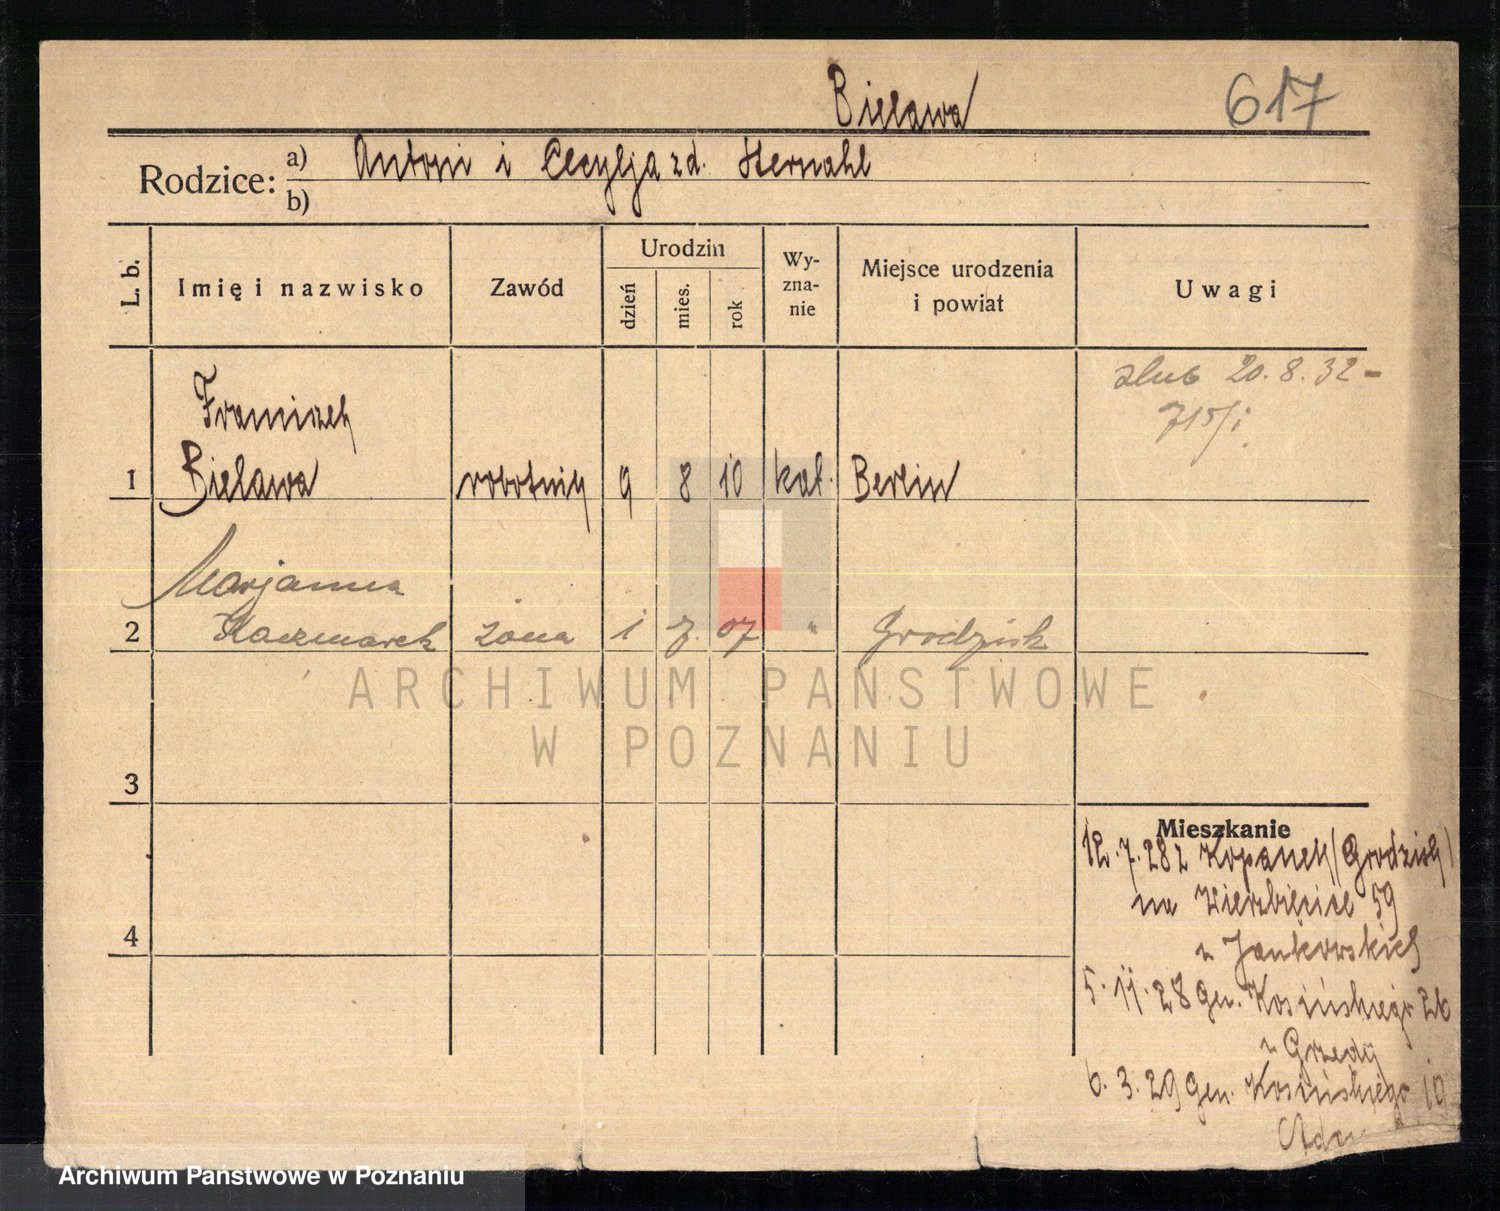 Bielawa
617
Rodzice: a) Antoni i Cecylja zd. Hernahl
b)
L. b.
Imię i nazwisko
Zawód
Urodzin
dzień
mies.
rok
Wy-
zna-
nie
Miejsce urodzenia
i powiat
Uwagi
ślub 20.8.32-
Franciszek
1 Bielawa robotnik 9 8 10 kat. Berlin
Marjanna
2 Kaczmarek żona 1 7. 07 " Grodzisk
3
4
Mieszkanie
12.7.28 z Kopanek (Grodzisk)
na Wierzbięcice 59
u Jankowskich
5.11.28 Gen. Kosińskiego 26
u Grzedy
6.3.29 Gen. Kosińskiego 19
ARCHIWUM PAŃSTWOWE
W POZNANIU
Archiwum Państwowe w Poznaniu